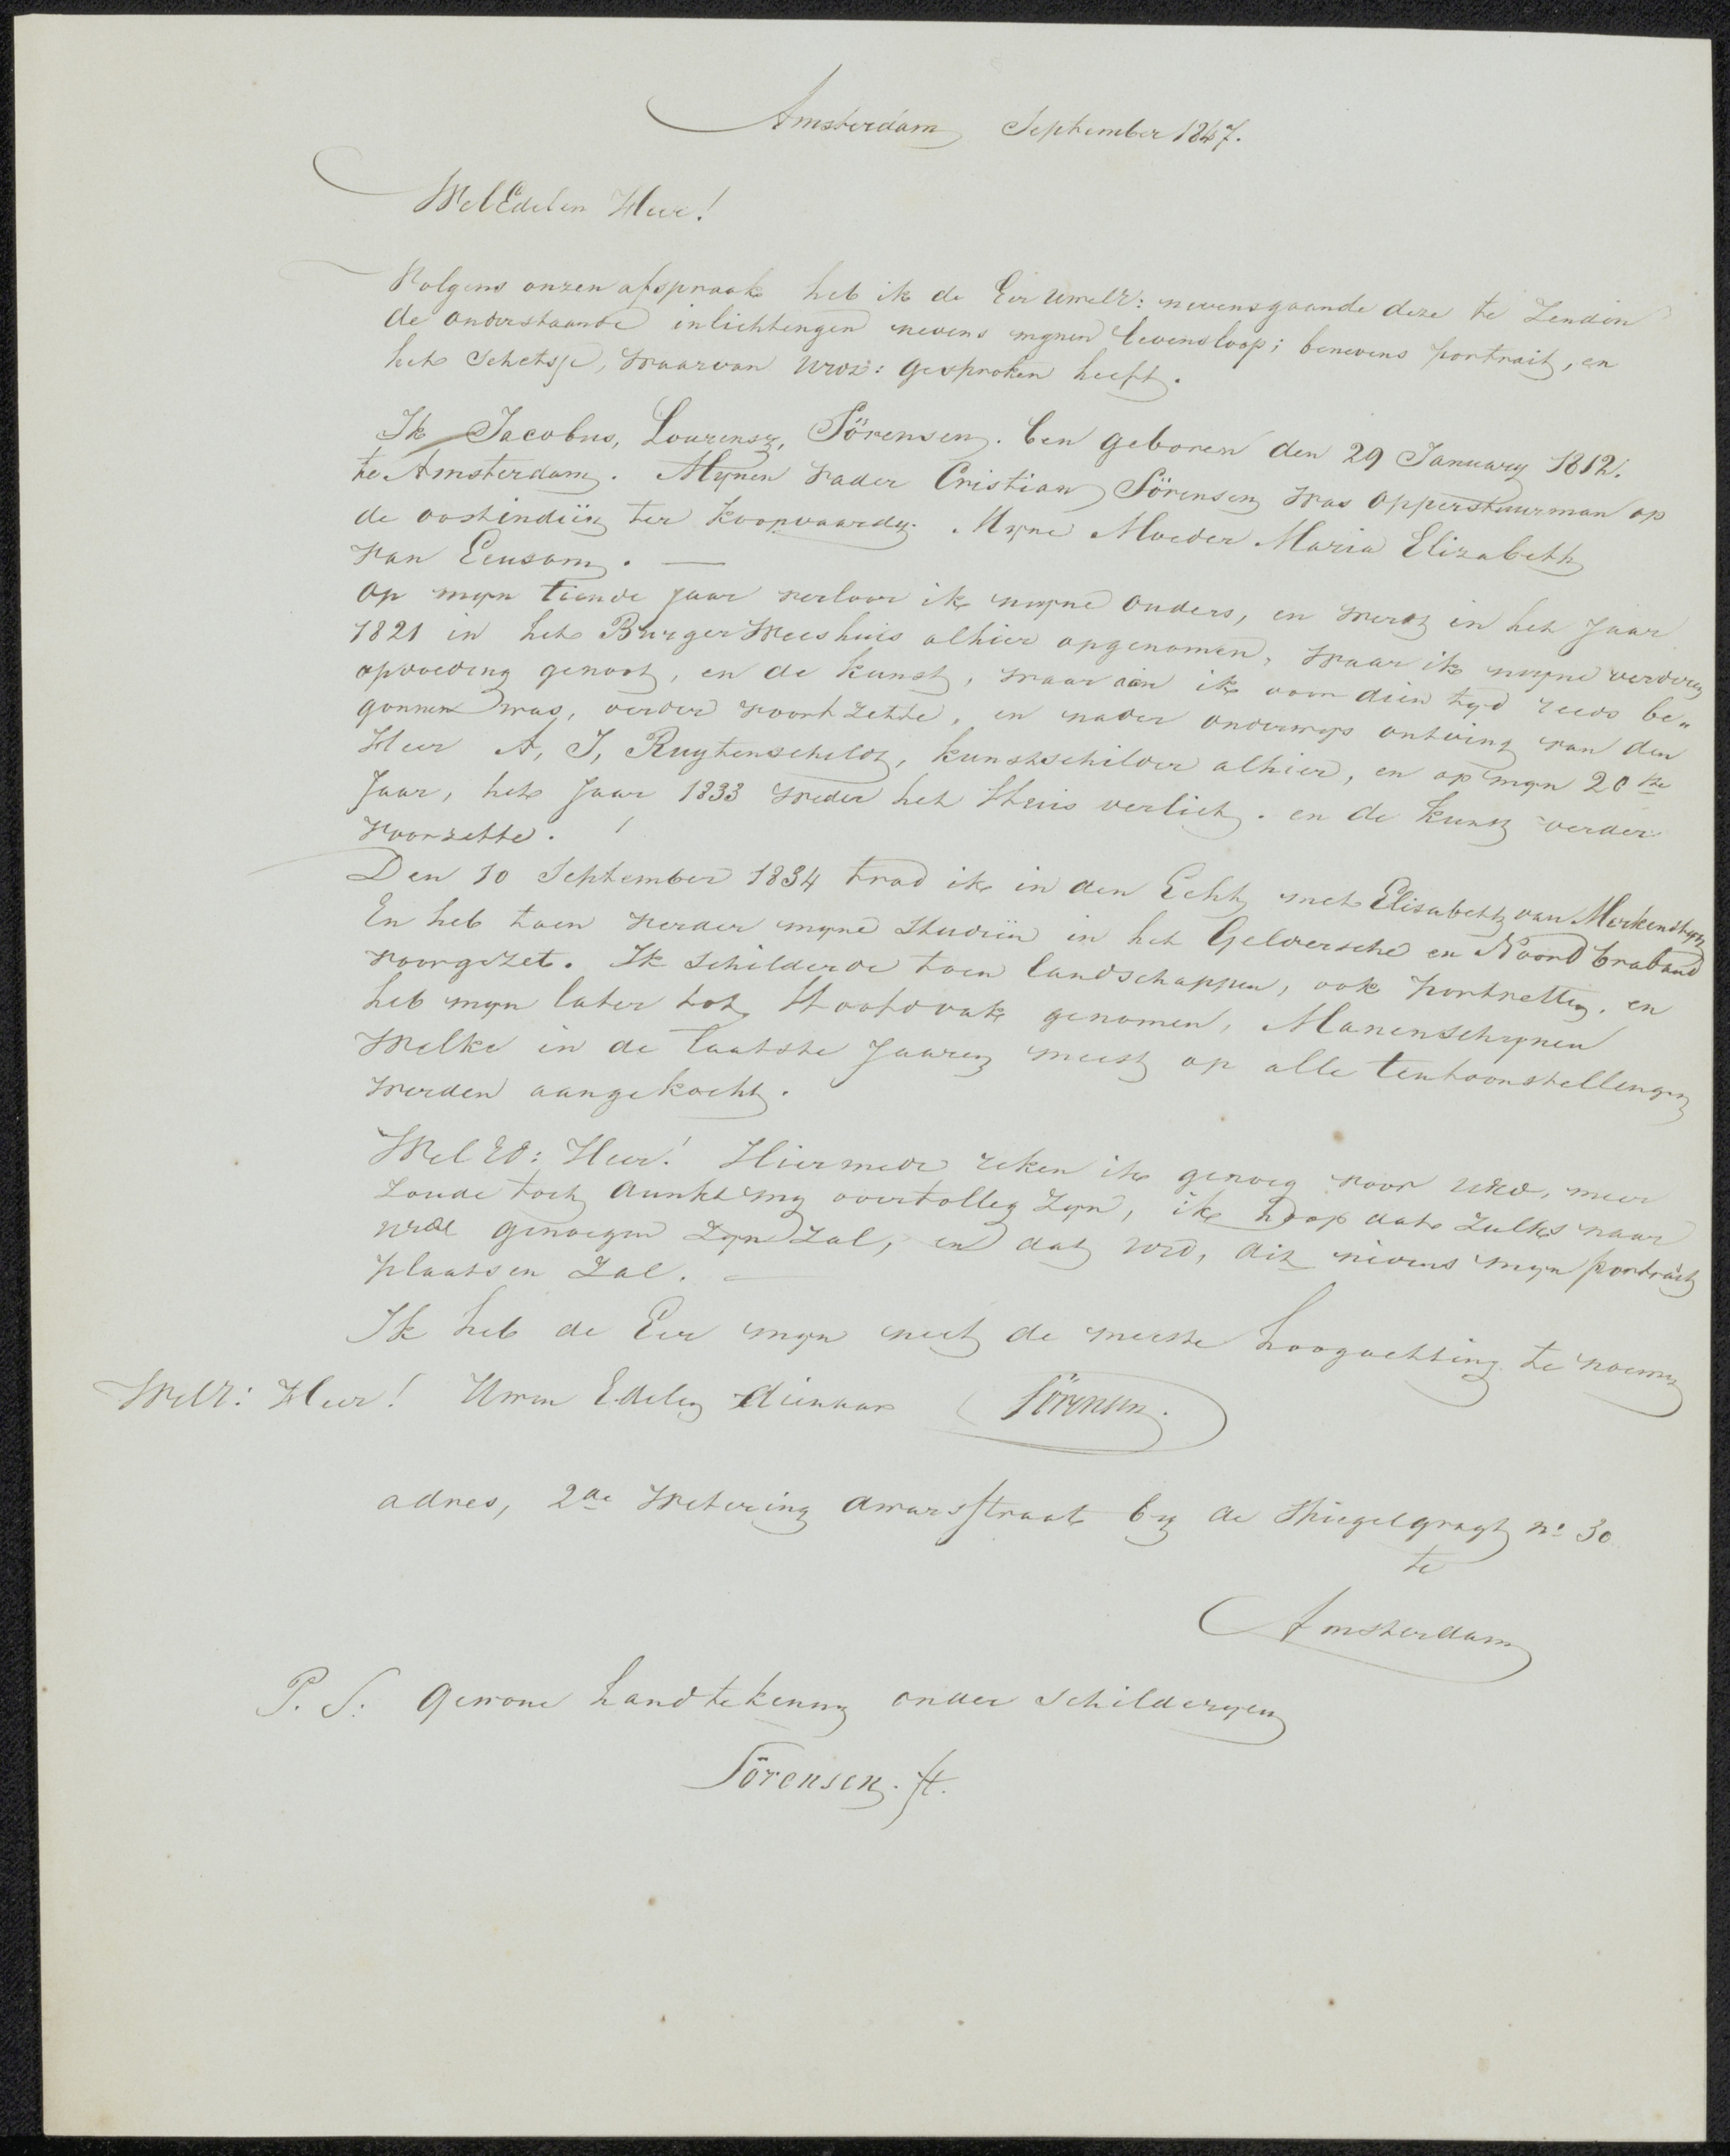 Amsterdam September 1847.
WelEdelen Heer!
Volgens onzen afspraak heb ik de Eer uwelE: nevensgaande deze te Zenden
de onderstaande inlichtingen nevens mynen levensloop; benevens portrait, en
het Schetsje, waarvan uwE: gesproken heeft.
Ik Jacobus, Lourensz, Sörensen. ben geboren den 29 January 1812.
te Amsterdam. Mynen vader Cristian Sörensen was opperstuurman op
de oostindiën ter Koopvaardy. Myne Moeder Maria Elizabeth
van Eeusom. —
Op myn tiende jaar verloor ik myne ouders, en werd in het Jaar
1821 in het BurgerWeeshuis alhier opgenomen, waar ik myne verderen
opvoeding genoot, en de kunst, waar aan ik voor dien tyd reeds be„
gonnen was, verder voort zette, en nader onderwys ontving van den
Heer A, J, Ruytenschildt, kunstschilder alhier, en op myn 20ste
Jaar, het Jaar 1833 weder het Huis verliet. en de kunst verder
voorzette.
Den 10 September 1834 trad ik in den Echt met Elisabeth van Merkensteyn
En heb toen verder myne Studiën in het Geldersche en Noord braband
voorgezet. Ik Schilderde toen landschappen, ook portretten. en
heb myn later tot Hoofdvak genomen, Manenschynen
Welke in de laatste Jaaren meest op alle tentoonstellengen
werden aangekocht.
Wel Ed: Heer! Hiermede reken ik genoeg voor uEd, meer
Zoude toch dunkt my overtolleg zyn, ik hoop dat Zulks naar
genoegen Zyn Zal, en dat dit nevens myn portrait
plaatsen Zal. —
Ik heb de Eer myn met de meeste hoogachting te noemen
WelE: Heer! Uwen Edelen dienaar Sörensen.
adres, 2de Wetering dwarsstraat by de Spiegelgragt no 30
te
Amsterdam
P. S. Gewone handtekening onder Schilderyen
Sörensen. ft.